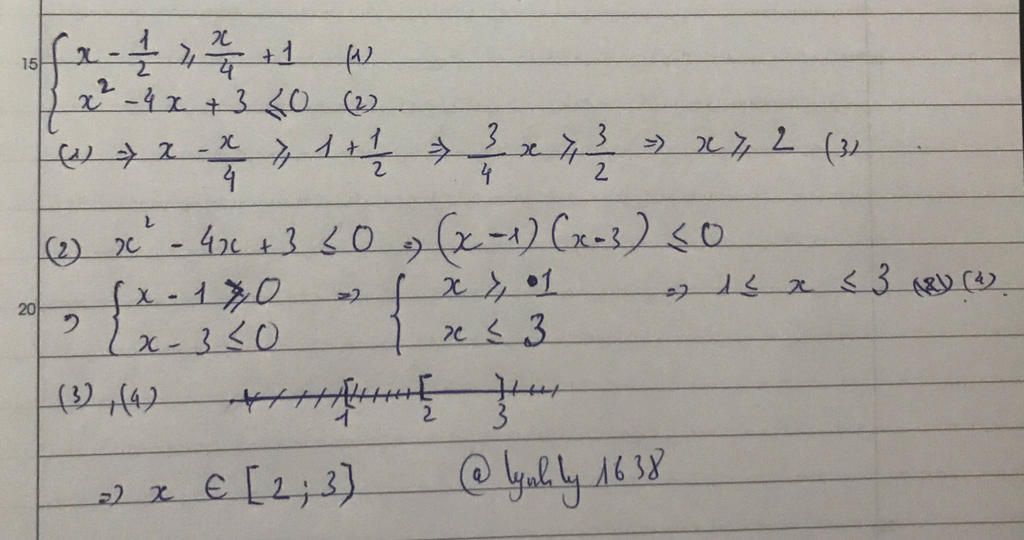 15
{ x - 1/2 ⩾ x/4 + 1 (1)
{ x² - 4x + 3 ≤ 0 (2)
(1) ⇒ x - x/4 ⩾ 1 + 1/2 ⇒ 3/4 x ⩾ 3/2 ⇒ x ⩾ 2 (3)
(2) x² - 4x + 3 ≤ 0 ⇒ (x - 1)(x - 3) ≤ 0
20
⇒ { x - 1 ⩾ 0 ⇒ { x ⩾ 1 ⇒ 1 ≤ x ≤ 3 (4)
{ x - 3 ≤ 0 { x ≤ 3
(3), (4) [ [ ]
1 2 3
⇒ x ∈ [2; 3] @lynhly1638